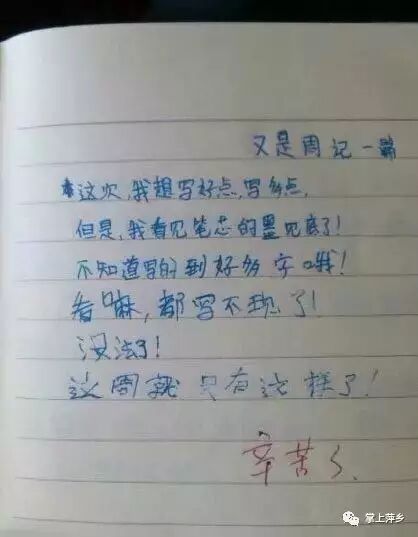 又是周记一篇
这次,我想写好点,写多点,
但是,我看见笔芯的墨见底了!
不知道写的到好多字哦!
看嘛,都写不现了!
没法了!
这周就只有这样了!
辛苦了、
掌上萍乡